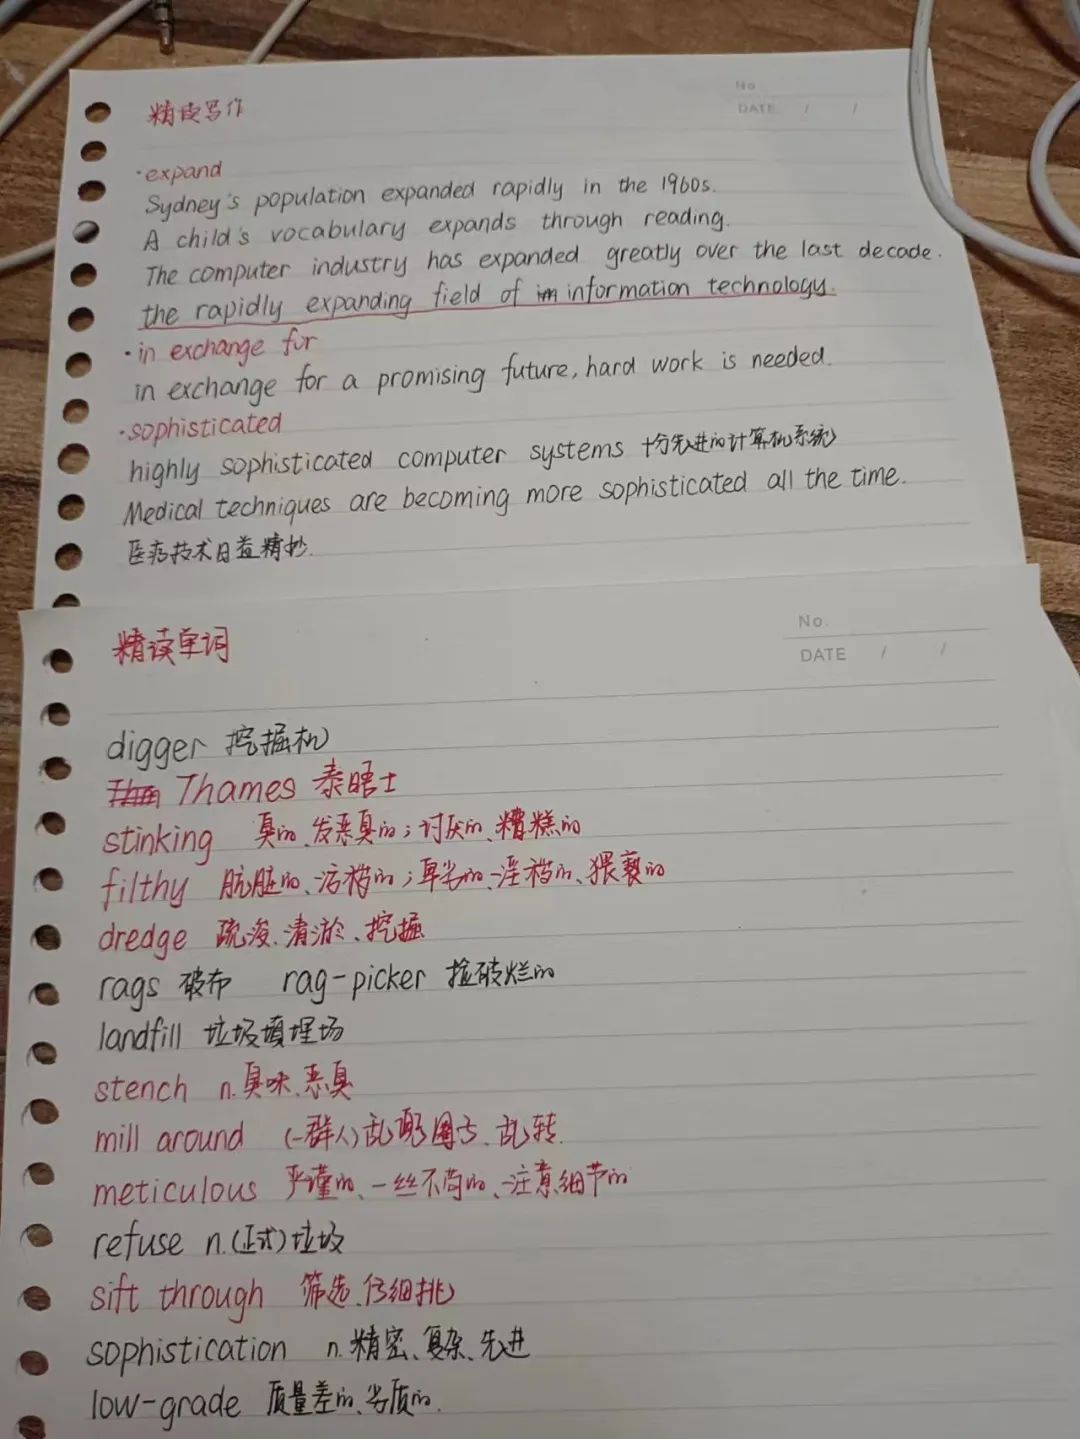 精读写作
No
DATE / /
·expand
Sydney's population expanded rapidly in the 1960s.
A child's vocabulary expands through reading.
The computer industry has expanded greatly over the last decade.
the rapidly expanding field of information technology.
·in exchange for
in exchange for a promising future, hard work is needed.
·sophisticated
highly sophisticated computer systems 十分先进的计算机系统
Medical techniques are becoming more sophisticated all the time.
医疗技术日益精妙.
精读单词
No.
DATE / /
digger 挖掘机
Thames 泰晤士
stinking 臭的、发恶臭的；讨厌的、糟糕的
filthy 肮脏的、污秽的；卑劣的、淫秽的、猥亵的
dredge 疏浚、清淤、挖掘
rags 破布 rag-picker 捡破烂的
landfill 垃圾填埋场
stench n.臭味、恶臭
mill around (一群人)乱哄哄、乱转
meticulous 严谨的、一丝不苟的、注意细节的
refuse n.(正式)垃圾
sift through 筛选、仔细挑
sophistication n.精密、复杂、先进
low-grade 质量差的、劣质的.